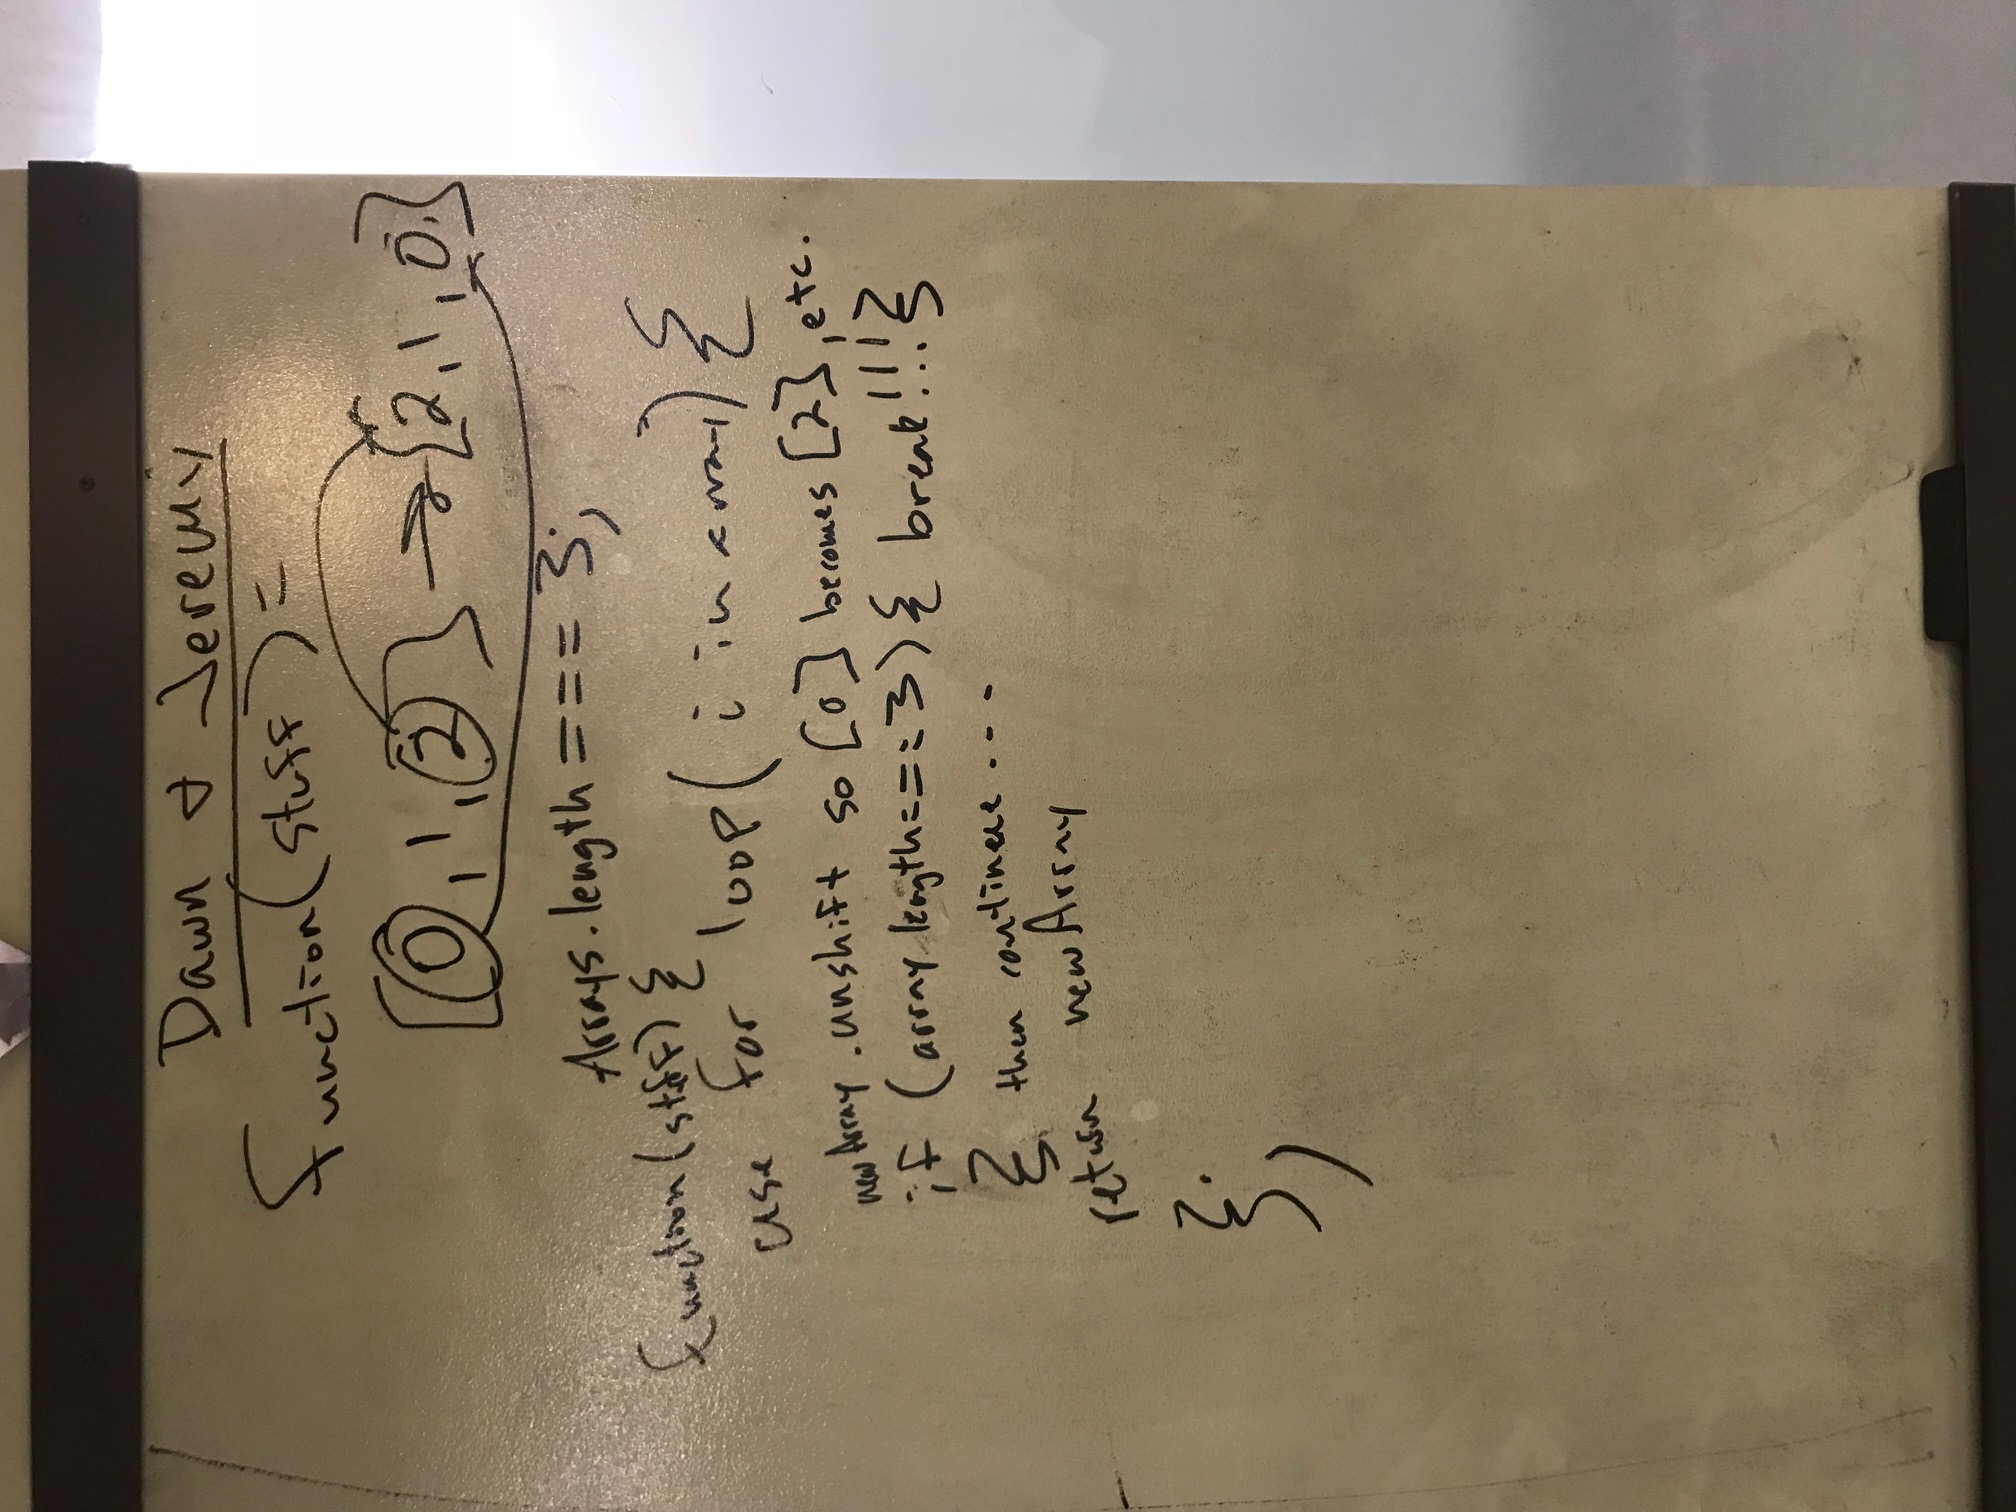 Dawn & Jeremy
function(stuff) =
[0, 1, 2] → [2, 1, 0,]
Arrays.length === 3;
function(stuff) {
use for loop( i in array) {
newArray.unshift so [0] becomes [2], etc.
if (array length===3) { break!!! }
} then continue...
return newArray
};